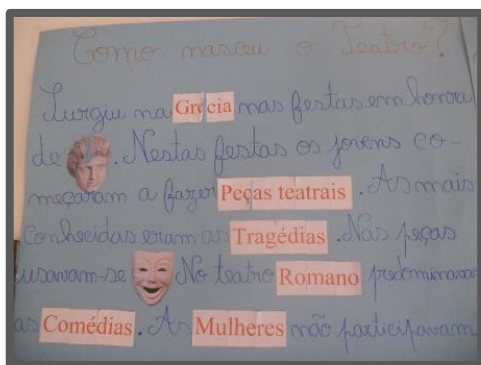 Como nasceu o Teatro?
Surgiu na Grécia nas festas em honra
de . Nestas festas os jovens co-
meçaram a fazer Peças teatrais. As mais
conhecidas eram as Tragédias. Nas peças
usavam-se No teatro Romano predominavam
as Comédias. As Mulheres não participavam.